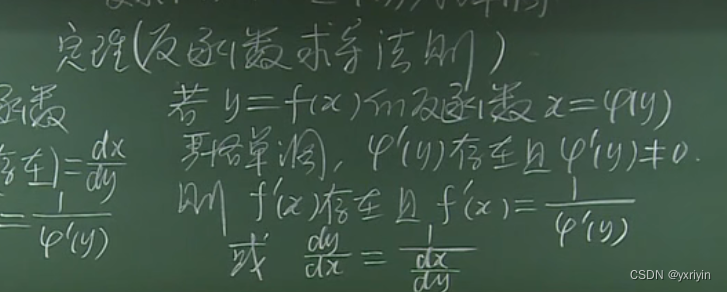 定理(反函数求导法则)
函数 若 y=f(x)的反函数 x=φ(y)
存在)=dx/dy 严格单调, φ'(y)存在且 φ'(y)≠0.
=1/φ'(y) 则 f'(x)存在且 f'(x)=1/φ'(y)
或 dy/dx = 1/(dx/dy)
CSDN @yxriyin